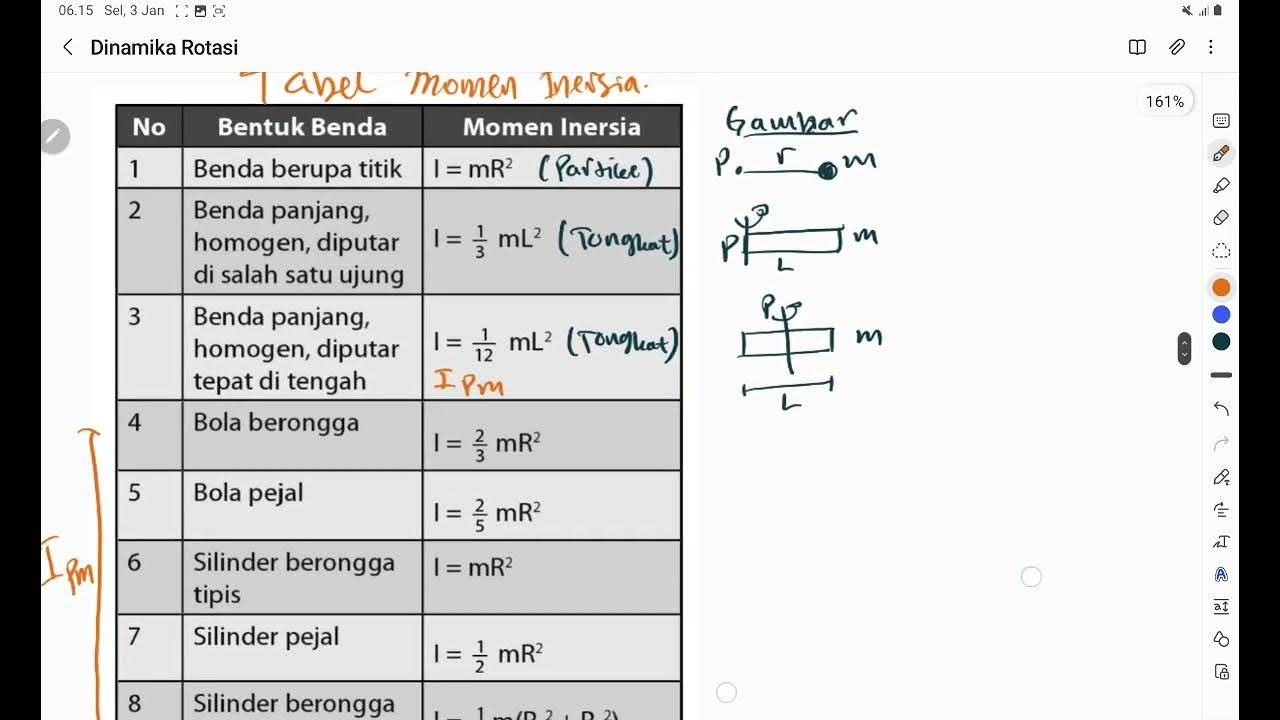 06.15 Sel, 3 Jan
Dinamika Rotasi
161%
Tabel Momen Inersia.
No Bentuk Benda Momen Inersia
1 Benda berupa titik I = mR² (Partikel)
2 Benda panjang, homogen, diputar di salah satu ujung I = 1/3 mL² (Tongkat)
3 Benda panjang, homogen, diputar tepat di tengah I = 1/12 mL² (Tongkat)
I pm
4 Bola berongga I = 2/3 mR²
5 Bola pejal I = 2/5 mR²
6 Silinder berongga tipis I = mR²
7 Silinder pejal I = 1/2 mR²
8 Silinder berongga
I pm
Gambar
P r m
P m
L
P
m
L